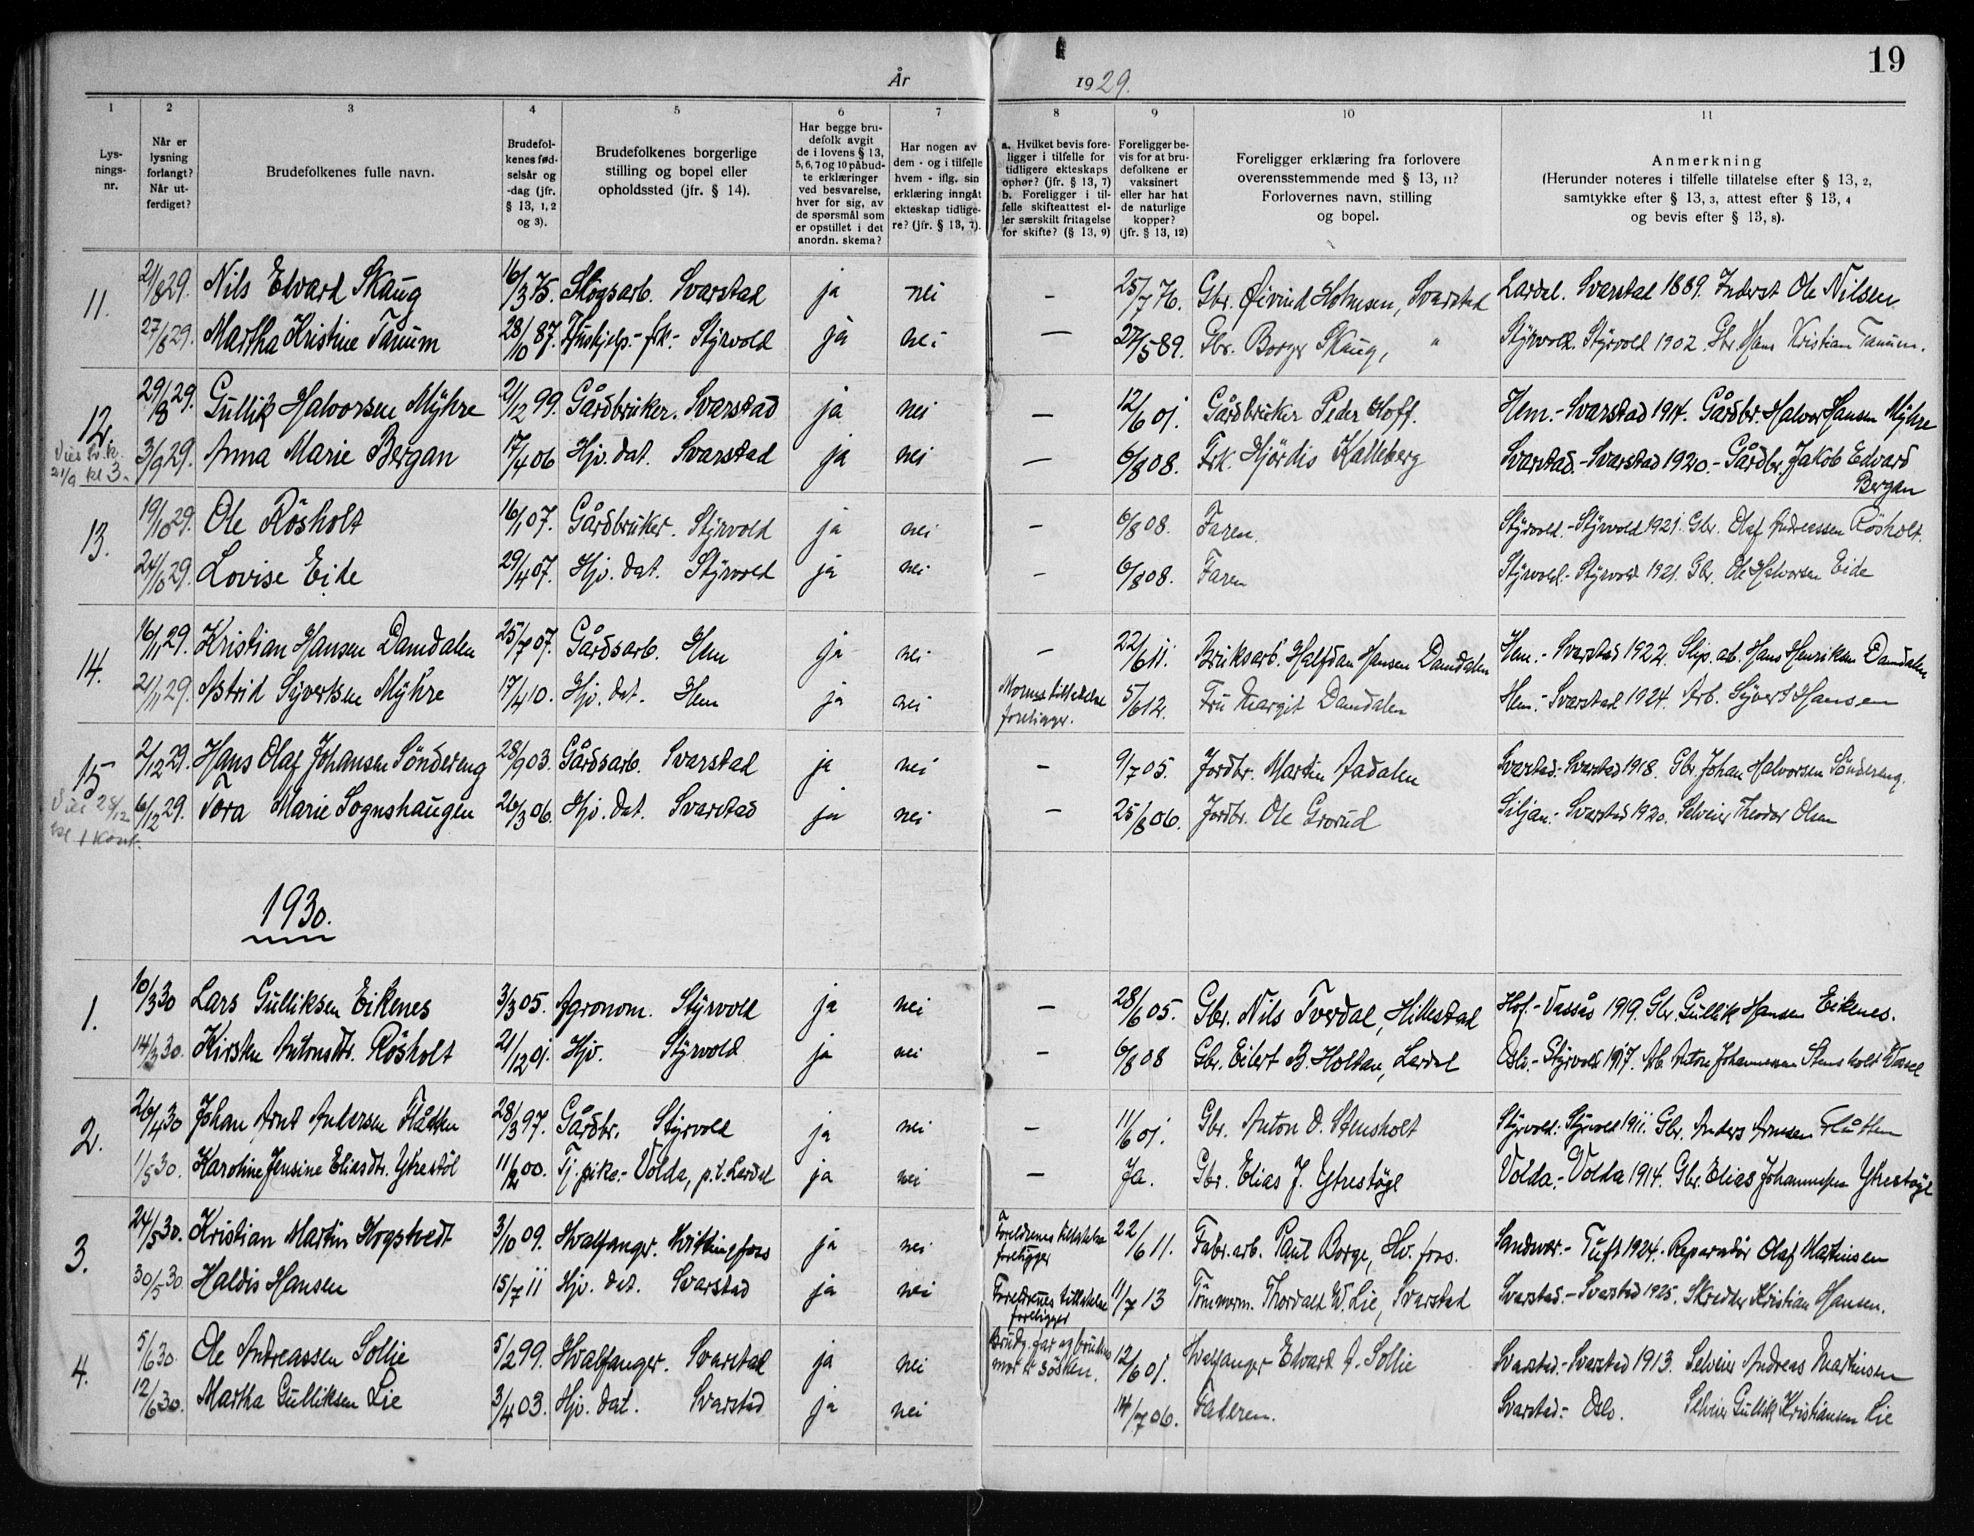 19
År 1929.
1 2 3 4 5 6 7 8 9 10 11
Lys-
nings-
nr.
Når er
lysning
forlangt?
Når ut-
ferdiget?
Brudefolkenes fulle navn.
Brudefol-
kenes fød-
selsår og
-dag (jfr.
§ 13, 1, 2
og 3).
Brudefolkenes borgerlige
stilling og bopel eller
opholdssted (jfr. § 14).
Har begge bru-
defolk avgit
de i lovens § 13,
5, 6, 7 og 10 påbud-
te erklæringer
ved besvarelse,
hver for sig, av
de spørsmål som
er opstillet i det
anordn. skema?
Har nogen av
dem - og i tilfelle
hvem - iflg. sin
erklæring inngått
ekteskap tidlige-
re? (jfr. § 13, 7).
a. Hvilket bevis fore-
ligger i tilfelle for
tidligere ekteskaps
ophør? (jfr. § 13, 7)
b. Foreligger i til-
felle skifteattest el-
ler særskilt fritagelse
for skifte? (§ 13, 9)
Foreligger be-
vis for at bru-
defolkene er
vaksinert
eller har hat
de naturlige
kopper?
(jfr. § 13, 12)
Foreligger erklæring fra forlovere
overensstemmende med § 13, 11?
Forlovernes navn, stilling
og bopel.
Anmerkning
(Herunder noteres i tilfelle tillatelse efter § 13, 2,
samtykke efter § 13, 3, attest efter § 13, 4
og bevis efter § 13, 8).
11. 21/8 29. Nils Edvard Skaug 16/3 75. Skogsarb. Svarstad ja nei — 25/7 76. Gbr. Øivind Holmsen, Svarstad Lardal. Svarstad 1889. Inderst Ole Nilsen
27/8 29. Martha Kristine Tanum 28/10 87. Hushjelp.- frk.- Styrvold ja nei — 27/5 89. Gbr. Borger Skaug, " Styrvold. Styrvold 1902. Gbr. Hans Kristian Tanum.
12. 29/8 29. Gullik Halvorsen Myhre 21/12 99. Gårdbruker. Svarstad ja nei — 12/6 01. Gårdbruker Peder Hoff. Hem.- Svarstad 1914. Gårdbr. Halvor Hansen Myhre
Vies
21/9 kl 3.
3/9 29. Anna Marie Bergan 17/4 06 Hjv. dat. Svarstad ja nei — 6/8 08. Frk. Hjördis Kalleberg Svarstad.- Svarstad 1920.- Gårdbr. Jakob Edvard
Bergan
13. 19/10 29. Ole Rösholt 16/1 07. Gårdbruker. Styrvold ja nei — 6/8 08. Faren. Styrvold.- Styrvold 1921. Gbr. Olaf Andreassen Rösholt.
24/10 29. Lovise Eide 29/4 07. Hjv. dat. Styrvold ja nei — 6/8 08. Faren Styrvold.- Styrvold 1921. Gbr. Ole Halvorsen Eide
14. 16/11 29. Kristian Hansen Damdalen 25/7 07. Gårdsarb. Hem ja nei — 22/6 11. Bruksarb. Halfdan Hansen Damdalen Hem.- Svarstad 1922. Slip. ab. Hans Henriksen Damdalen
21/11 29. Astrid Syvertsen Myhre 17/4 10. Hjv. dat. Hem ja nei Mornes tillatelse
foreligger. 5/6 12. Fru Margit Damdalen Hem.- Svarstad 1924. Arb. Syvert Hansen
15 2/12 29. Hans Olaf Johansen Söndereng 28/9 03. Gårdsarb. Svarstad ja nei — 9/7 05. Jordbr. Martin Aadalen Svarstad.- Svarstad 1918. Gbr. Johan Halvorsen Söndereng.
Vies 28/12
kl 1 kont.
6/12 29. Tora Marie Sognshaugen 26/3 06. Hjv. dat. Svarstad ja nei — 25/8 06. Jordbr. Ole Grorud Siljan.- Svarstad 1920. Selveier Theodor Olsen
1930.
1. 10/3 30 Lars Gulliksen Eikenes 3/3 05. Agronom. Styrvold ja nei — 28/6 05. Gbr. Nils Tverdal, Hillestad Hof.- Vassås 1919. Gbr. Gullik Hansen Eikenes.
14/3 30. Kirsten Antonsdtr. Rösholt 21/12 01. Hjv. Styrvold ja nei — 6/8 08 Gbr. Eilert B. Holtan, Lardal Oslo.- Styrvold 1917. Arb. Anton Johannesen Stensholt
2. 26/4 30 Johan Arnt Andersen Flåtten 28/3 97. Gårdbr. Styrvold ja nei — 11/6 01. Gbr. Anton O. Stensholt Styrvold.- Styrvold 1911. Gbr. Anders Arnesen Flåtten
1/5 30. Karoline Jensine Eliasdtr. Ytrestöl 11/2 00. Tj. pike.- Volda, p.t. Lardal ja nei — Ja. Gbr. Elias J. Ytrestöyl Volda.- Volda 1914. Gbr. Elias Johannessen Ytrestöyl
3. 24/5 30. Kristian Martin Hogstvedt 3/10 09. Hvalfanger. Hvittingfoss ja nei Foreldrenes tillatelse
foreligger 22/6 11. Fabr. arb. Paul Borge, Hv. foss. Sandsvær.- Tuft 1924. Reparatör Olaf Martinsen
30/5 30 Haldis Hansen 15/7 11 Hjv. dat. Svarstad ja nei Foreldrenes tillatelse
foreligger 11/7 13 Tömmerm. Thorvald W. Lie, Svarstad Svarstad.- Svarstad 1925. Skredder Kristian Hansen.
4. 5/6 30. Ole Andreassen Sollie 5/2 99. Hvalfanger. Svarstad ja nei Brudg. far og brudens
mor er sösken. 12/6 01. Hvalfanger Edvard A. Sollie Svarstad.- Svarstad 1913. Selveier Andreas Martinsen
12/6 30. Martha Gulliksen Lie 3/4 03. Hjv. dat. Svarstad ja nei 14/7 06. Faderen. Svarstad.- Oslo. Selveier Gullik Kristiansen Lie